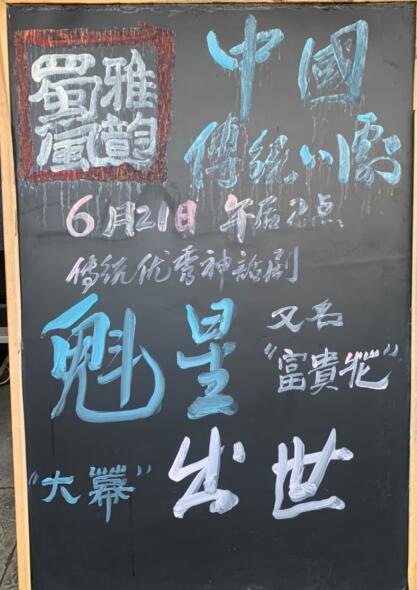 蜀風雅韵
中國
傳統川劇
6月21日 午后2点
传统优秀神話剧
魁星 又名
"富貴花"
"大幕" 出世